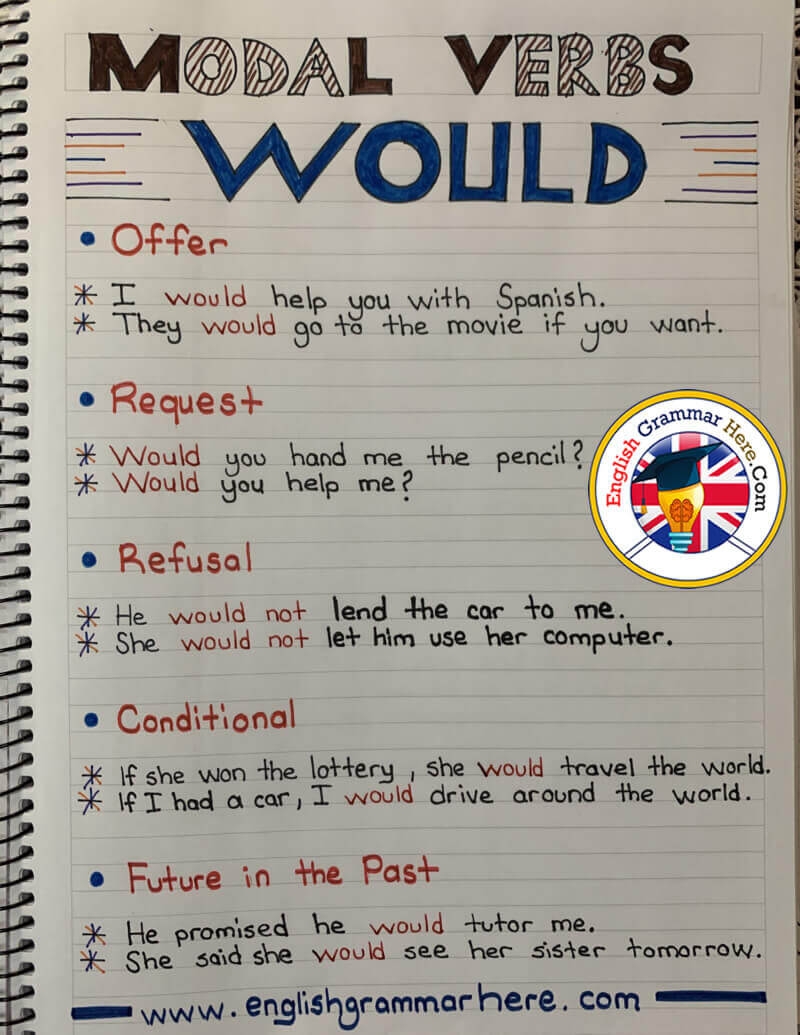 MODAL VERBS
WOULD
• Offer
* I would help you with Spanish.
* They would go to the movie if you want.
• Request
* Would you hand me the pencil?
* Would you help me?
English Grammar Here.Com
• Refusal
* He would not lend the car to me.
* She would not let him use her computer.
• Conditional
* If she won the lottery, she would travel the world.
* If I had a car, I would drive around the world.
• Future in the Past
* He promised he would tutor me.
* She said she would see her sister tomorrow.
www.englishgrammarhere.com